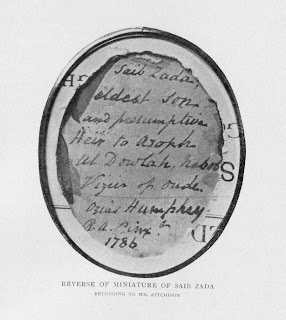 Saib Zada
eldest son
and presumptive
Heir to Asoph
ul Dowlah, Nabob
Vizir of Oude.
Ozias Humphry
R.A. Pinxt
1786
REVERSE OF MINIATURE OF SAIB ZADA
BELONGING TO MR. AITCHISON